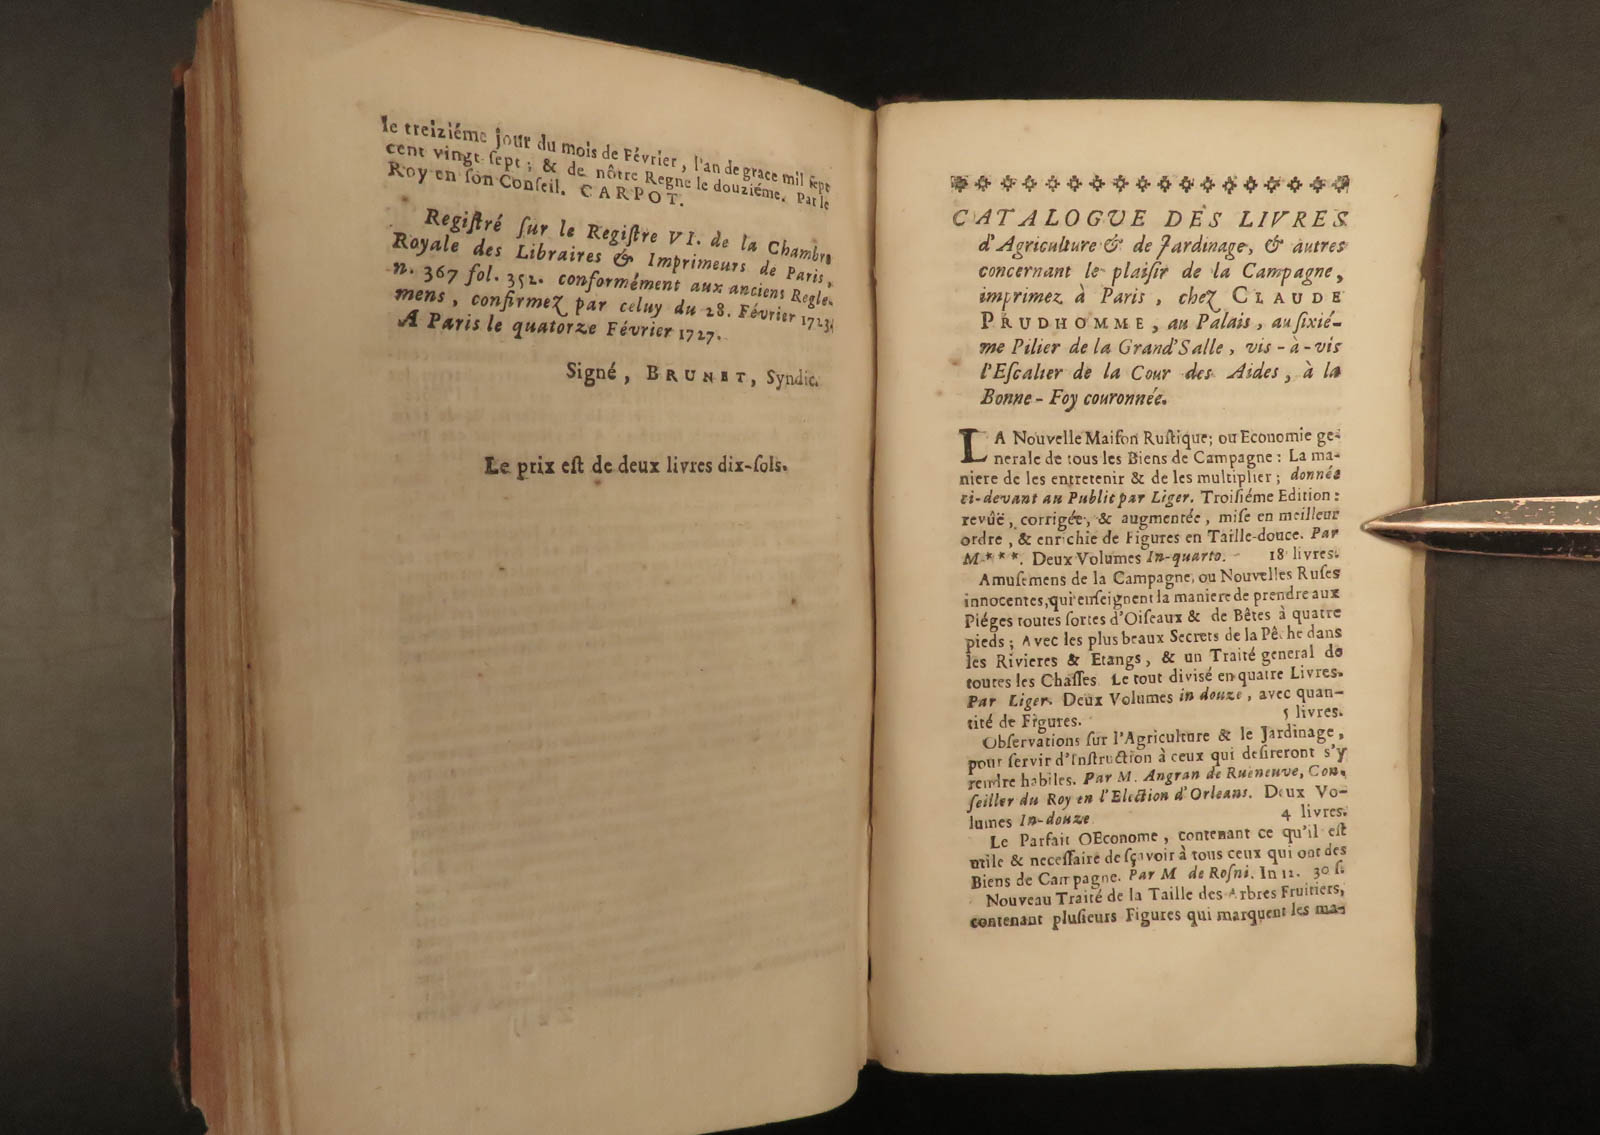 le treiziéme jour du mois de Février, l'an de grace mil sept
cent vingt-sept; & de nôtre Regne le douziéme. Par le
Roy en son Conseil. CARPOT.
Registré sur le Registre VI. de la Chambre
Royale des Libraires & Imprimeurs de Paris,
n. 367 fol. 352. conformément aux anciens Regle-
mens, confirmez par celuy du 28. Février 1723.
A Paris le quatorze Février 1727.
Signé, BRUNET, Syndic.
Le prix est de deux livres dix-sols.
CATALOGUE DES LIVRES
d'Agriculture & de Jardinage, & autres
concernant le plaisir de la Campagne,
imprimez à Paris, chez CLAUDE
PRUDHOMME, au Palais, au sixié-
me Pilier de la Grand'Salle, vis-à-vis
l'Escalier de la Cour des Aides, à la
Bonne-Foy couronnée.
LA Nouvelle Maison Rustique; ou Economie ge-
nerale de tous les Biens de Campagne: La ma-
niere de les entretenir & de les multiplier; donnée
ci-devant au Public par Liger. Troisiéme Edition:
revûë, corrigée, & augmentée, mise en meilleur
ordre, & enrichie de Figures en Taille-douce. Par
M***. Deux Volumes In-quarto. 18 livres.
Amusemens de la Campagne, ou Nouvelles Ruses
innocentes, qui enseignent la maniere de prendre aux
Piéges toutes sortes d'Oiseaux & de Bêtes à quatre
pieds; Avec les plus beaux Secrets de la Pêche dans
les Rivieres & Etangs, & un Traité general de
toutes les Chasses. Le tout divisé en quatre Livres.
Par Liger. Deux Volumes in douze, avec quan-
tité de Figures. 5 livres.
Observations sur l'Agriculture & le Jardinage,
pour servir d'Instruction à ceux qui desireront s'y
rendre habiles. Par M. Angran de Rueneuve, Con-
seiller du Roy en l'Election d'Orleans. Deux Vo-
lumes In-douze 4 livres.
Le Parfait OEconome, contenant ce qu'il est
utile & necessaire de sçavoir à tous ceux qui ont des
Biens de Campagne. Par M de Rosni. In 12. 30 s.
Nouveau Traité de la Taille des Arbres Fruitiers,
contenant plusieurs Figures qui marquent les ma-